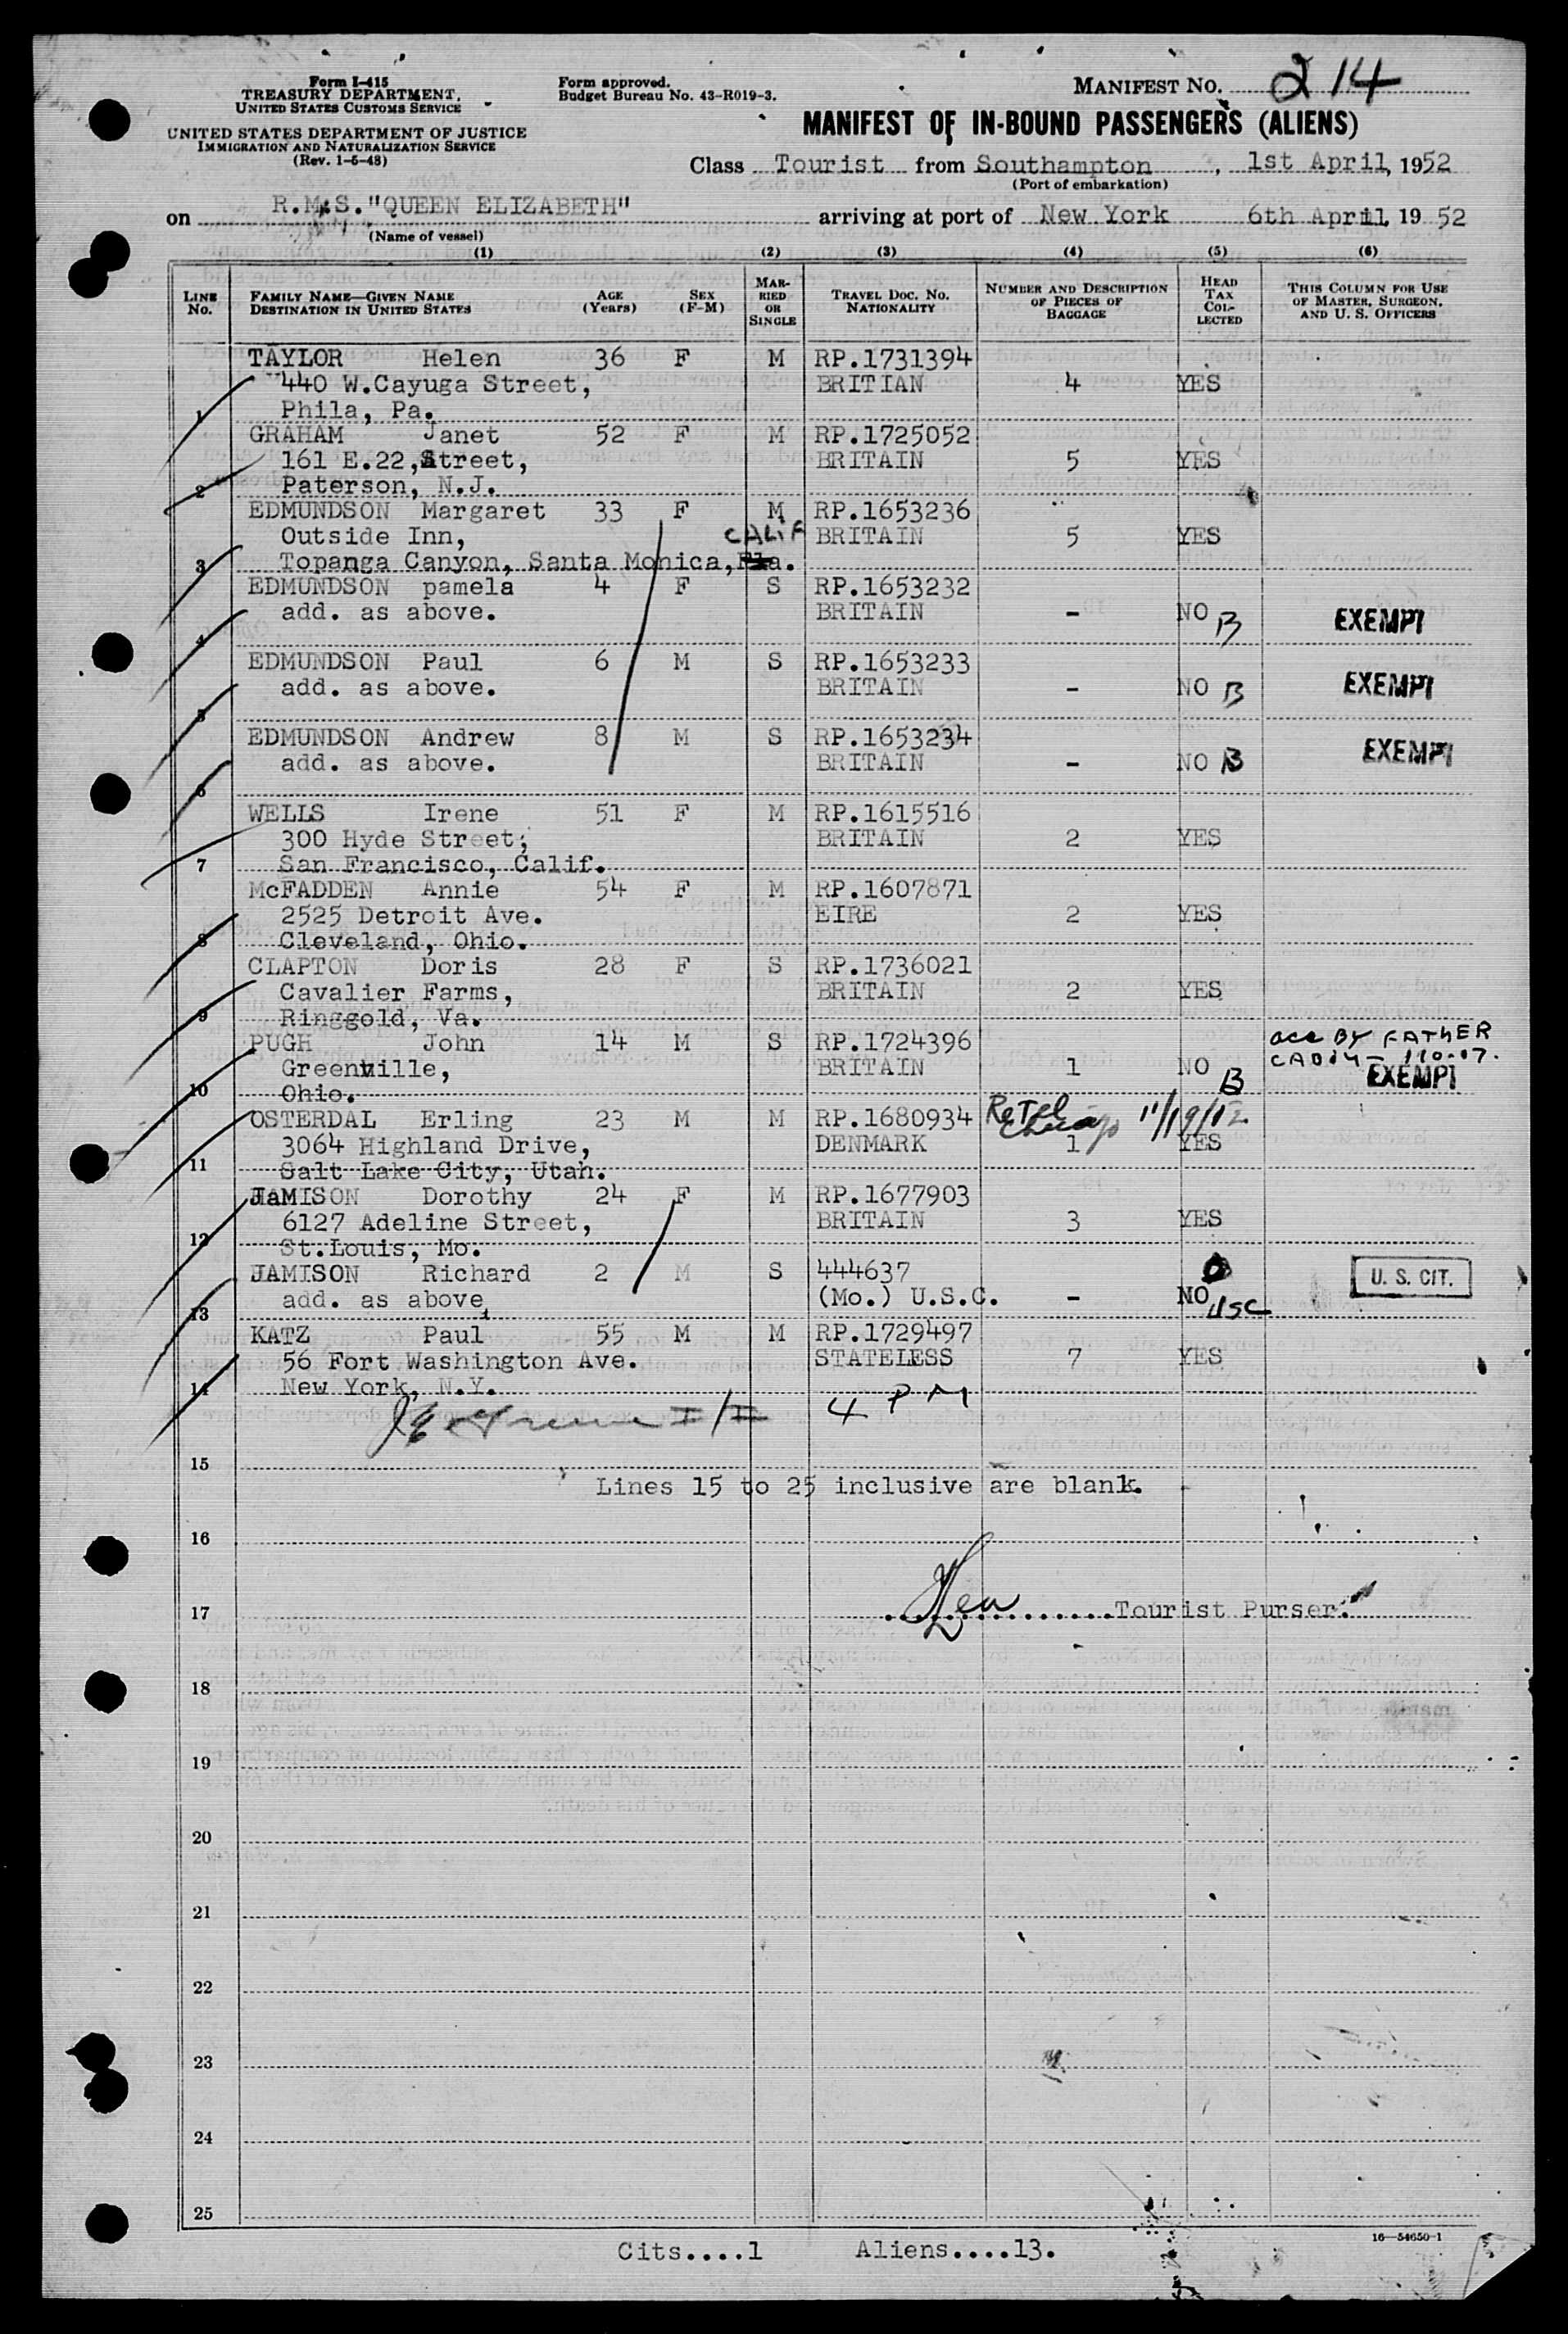 Form I-415
TREASURY DEPARTMENT,
UNITED STATES CUSTOMS SERVICE
UNITED STATES DEPARTMENT OF JUSTICE
IMMIGRATION AND NATURALIZATION SERVICE
(Rev. 1-5-48)
Form approved.
Budget Bureau No. 43-R019-3.
MANIFEST NO. 214
MANIFEST OF IN-BOUND PASSENGERS (ALIENS)
Class Tourist from Southampton, 1st April, 1952
(Port of embarkation)
on R.M.S."QUEEN ELIZABETH" arriving at port of New York 6th April, 1952
(Name of vessel)
(1) (2) (3) (4) (5) (6)
LINE No. FAMILY NAME—GIVEN NAME DESTINATION IN UNITED STATES AGE (Years) SEX (F-M) MARRIED OR SINGLE TRAVEL DOC. NO. NATIONALITY NUMBER AND DESCRIPTION OF PIECES OF BAGGAGE HEAD TAX COLLECTED THIS COLUMN FOR USE OF MASTER, SURGEON, AND U. S. OFFICERS
TAYLOR Helen 36 F M RP.1731394
440 W.Cayuga Street, BRITIAN 4 YES
1 Phila, Pa.
GRAHAM Janet 52 F M RP.1725052
161 E.22,Street, BRITAIN 5 YES
2 Paterson, N.J.
EDMUNDSON Margaret 33 F M RP.1653236
Outside Inn, CALIF BRITAIN 5 YES
3 Topanga Canyon, Santa Monica, Fla.
EDMUNDSON pamela 4 F S RP.1653232
add. as above. BRITAIN - NO B EXEMPT
4
EDMUNDSON Paul 6 M S RP.1653233
add. as above. BRITAIN - NO B EXEMPT
5
EDMUNDSON Andrew 8 M S RP.1653234
add. as above. BRITAIN - NO B EXEMPT
6
WELLS Irene 51 F M RP.1615516
300 Hyde Street, BRITAIN 2 YES
7 San Francisco, Calif.
McFADDEN Annie 54 F M RP.1607871
2525 Detroit Ave. EIRE 2 YES
8 Cleveland, Ohio.
CLAPTON Doris 28 F S RP.1736021
Cavalier Farms, BRITAIN 2 YES
9 Ringgold, Va.
PUGH John 14 M S RP.1724396 acc BY FATHER
Greenville, BRITAIN 1 NO B EXEMPT
10 Ohio.
OSTERDAL Erling 23 M M RP.1680934 ReTel Chicago 11/19/12
3064 Highland Drive, DENMARK 1 YES
11 Salt Lake City, Utah.
JAMISON Dorothy 24 F M RP.1677903
6127 Adeline Street, BRITAIN 3 YES
12 St.Louis, Mo.
JAMISON Richard 2 M S 444637 U. S. CIT.
add. as above, (Mo.) U.S.C. - NO USC
13
KATZ Paul 55 M M RP.1729497
56 Fort Washington Ave. STATELESS 7 YES
14 New York, N.Y.
I/II 4 PM
15
Lines 15 to 25 inclusive are blank.
16
17 Tourist Purser.
18
19
20
21
22
23
24
25
16—54650-1
Cits....1 Aliens....13.